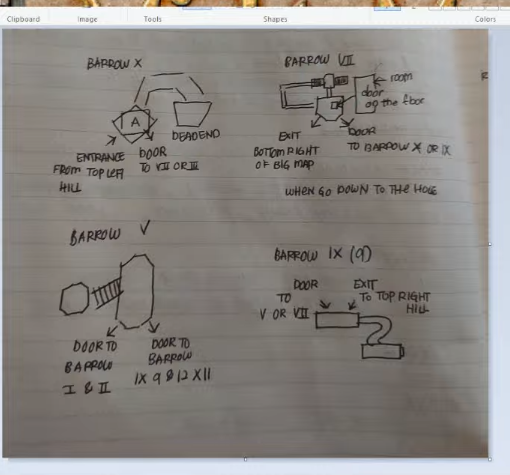 Clipboard
Image
Tools
Shapes
Colors
BARROW X
A
DEADEND
ENTRANCE
FROM TOP LEFT
HILL
DOOR
TO VII OR III
BARROW VII
room
door
on the floor
EXIT
BOTTOM RIGHT
OF BIG MAP
DOOR
TO BARROW X OR IX
WHEN GO DOWN TO THE HOLE
BARROW V
DOOR TO
BARROW
I & II
DOOR TO
BARROW
IX 9 & 12 XII
BARROW IX (9)
DOOR
TO
V OR VII
EXIT
TO TOP RIGHT
HILL